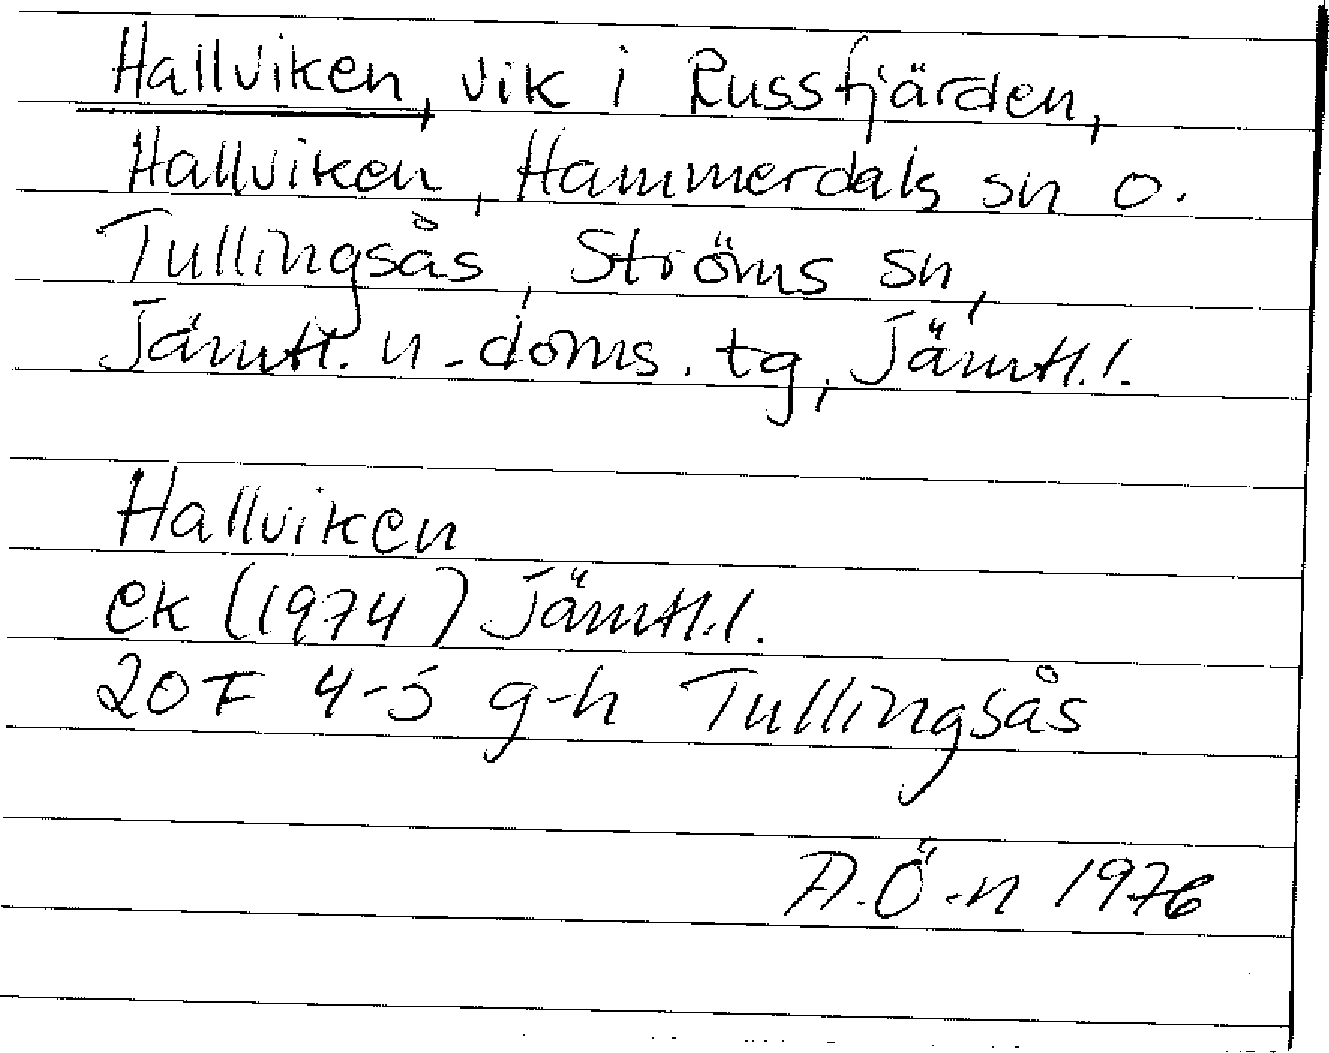 Hallviken, vik i Russfjärden,
Hallviken, Hammerdals sn o.
Tullingsås, Ströms sn,
Jämtl. n. doms. tg, Jämtl.l.
Hallviken
ek (1974) Jämtl.l.
20F 4-5 g-h Tullingsås
A.Ö-n 1976